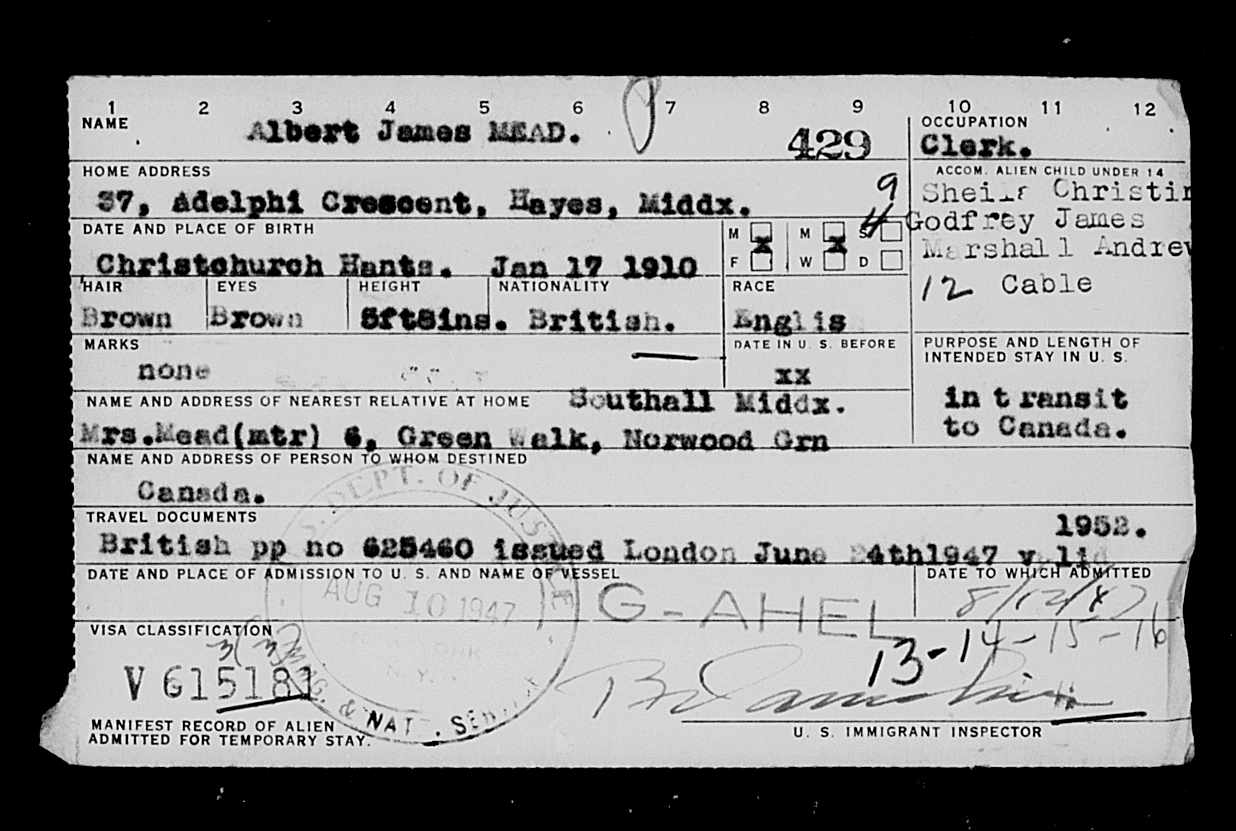 1 2 3 4 5 6 7 8 9 10 11 12
NAME
Albert James MEAD.
429
OCCUPATION
Clerk.
HOME ADDRESS
37, Adelphi Crescent, Hayes, Middx.
9
4
ACCOM. ALIEN CHILD UNDER 14
Sheila Christin
Godfrey James
Marshall Andrew
12 Cable
DATE AND PLACE OF BIRTH
Christchurch Hants. Jan 17 1910
M x M x S
F W D
HAIR EYES HEIGHT NATIONALITY RACE
Brown Brown 5ft8ins. British. Englis
MARKS
none
DATE IN U. S. BEFORE
xx
PURPOSE AND LENGTH OF
INTENDED STAY IN U. S.
in transit
to Canada.
NAME AND ADDRESS OF NEAREST RELATIVE AT HOME Southall Middx.
Mrs.Mead(mtr) 6, Green Walk, Norwood Grn
NAME AND ADDRESS OF PERSON TO WHOM DESTINED
Canada.
TRAVEL DOCUMENTS
1952.
British pp no 625460 issued London June 24th1947 valid
DATE AND PLACE OF ADMISSION TO U. S. AND NAME OF VESSEL
DATE TO WHICH ADMITTED
DEPT. OF JUSTICE
AUG 10 1947
G-AHEL
8/12/47
N.Y.
IMMIG. & NAT. SERV
VISA CLASSIFICATION
3(3)
13-14-15-16
V 615181
MANIFEST RECORD OF ALIEN
ADMITTED FOR TEMPORARY STAY.
U. S. IMMIGRANT INSPECTOR